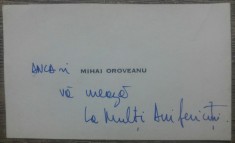 ANCA și MIHAI OROVEANU
vă urează
La Mulți Ani fericiți.